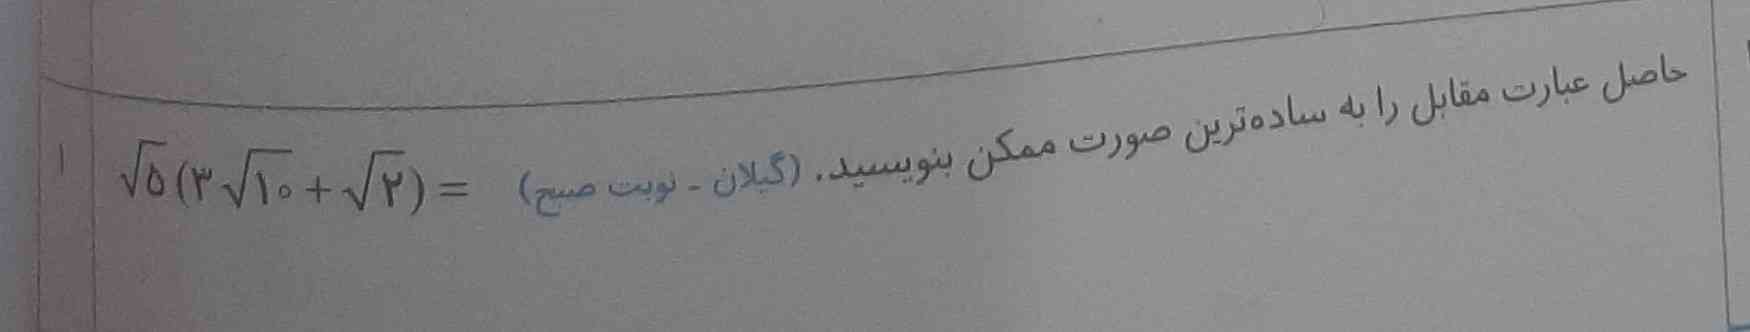 حاصل عبارت مقابل را به ساده‌ترین صورت ممکن بنویسید. (گیلان - نوبت صبح) √۵(۳√۱۰+√۲)=
۱